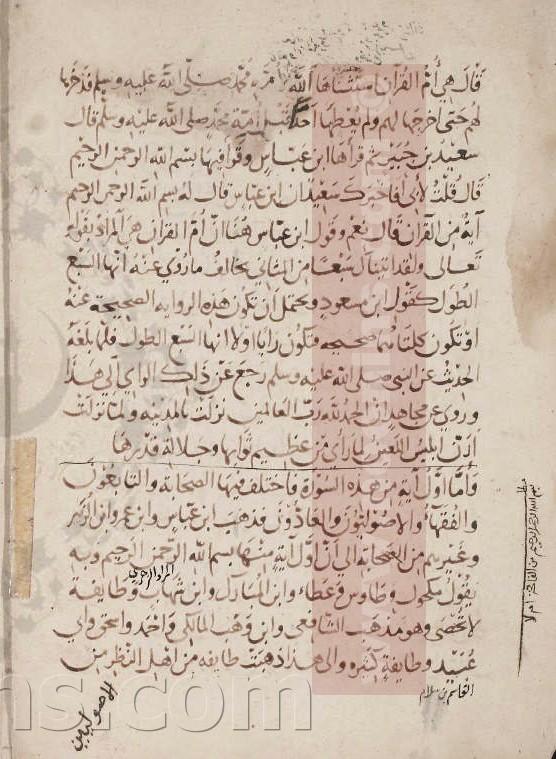 قال هي أم القرآن استثناها الله لأمة محمد صلى الله عليه وسلم فذخرها
لهم حتى أخرجها لهم ولم يعطها أحد قبل أمة محمد صلى الله عليه وسلم قال
سعيد بن جبير ثم قرأها ابن عباس وقرأ فيها بسم الله الرحمن الرحيم
قال قلت لأبي فأخبرك سعيد ان ابن عباس قال له بسم الله الرحمن الرحيم
آية من القرآن قال نعم وقول ابن عباس هنا ان أم القرآن هي المراد بقوله
تعالى ولقد آتيناك سبعا من المثاني يخالف ما روي عنه أنها السبع
الطول كقول ابن مسعود ويحتمل أن تكون هذه الرواية الصحيحة عنه
او تكون كلتاهما صحيحه فتكون رايا اولا انها السبع الطول فلما بلغه
الحديث عن النبي صلى الله عليه وسلم رجع عن ذلك الراي الى هذا
وروي عن مجاهد ان الحمد لله رب العالمين نزلت بالمدينه ولما نزلت
رن ابليس اللعين لما رأى من عظيم ثوابها وجلالة قدرها
وأما أول آية من هذه السورة فاختلف فيها الصحابة والتابعون
والفقهاء والاصوليون والعادون فذهب ابن عباس وابن عمر وابن الزبير
وغيرهم من الصحابة الى أن اول آية منها بسم الله الرحمن الرحيم وبه
يقول مكحول وطاوس وعطاء وابن المبارك وابن شهاب وطايفة
لا تحصى وهو مذهب الشافعي وابن وهب المالكي واحمد واسحق وابي
عبيد وطايفة كثيره والى هذا ذهبت طايفه من اهل النظر من
القاسم بن سلام
الاصوليين
ns.com